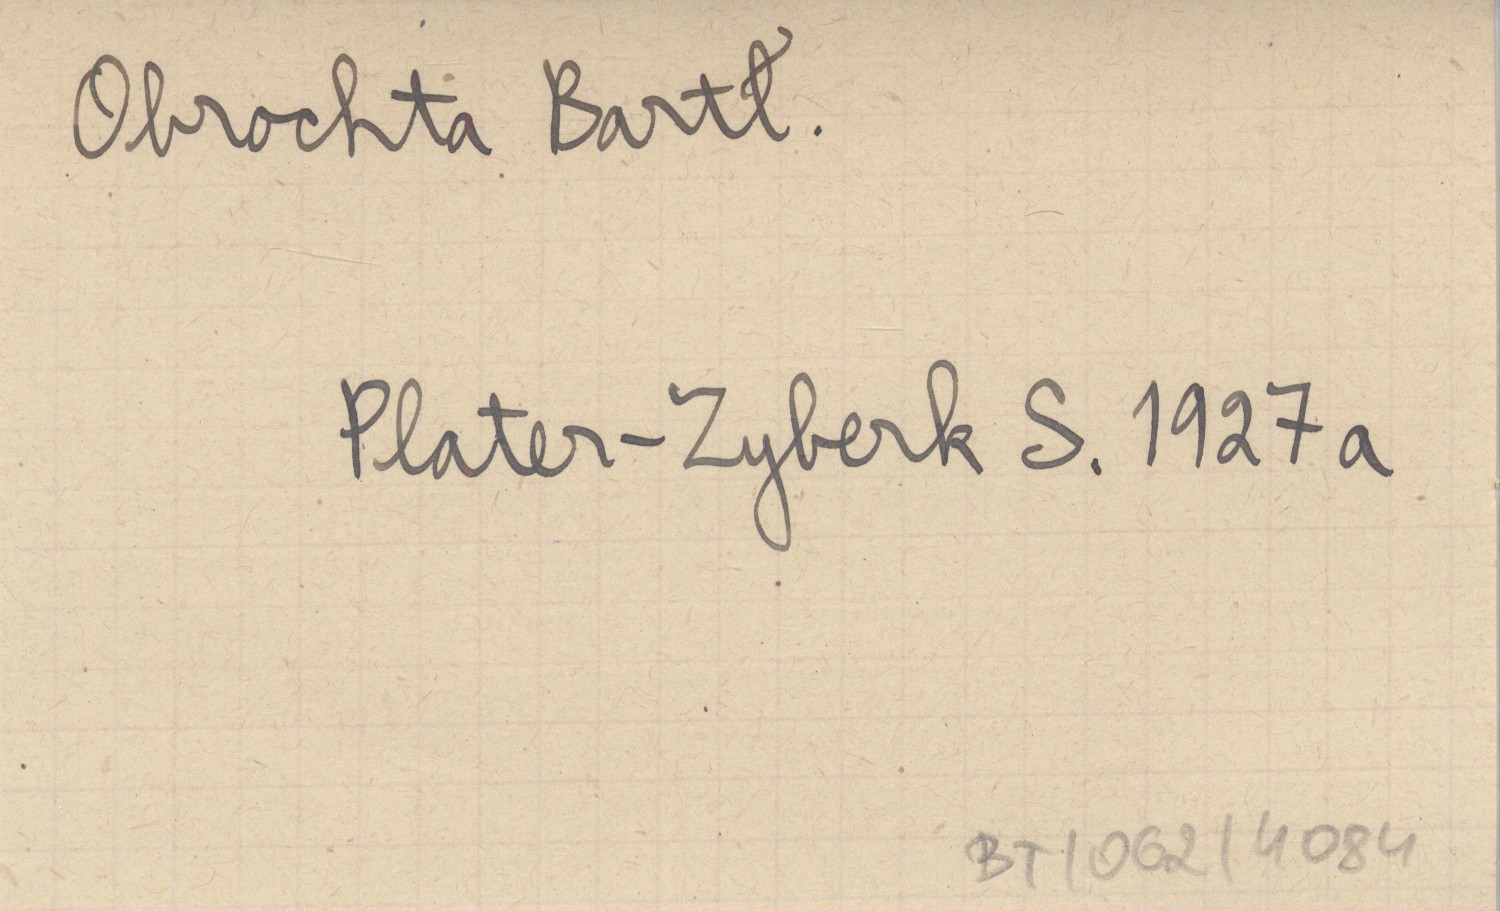 Obrochta Bartł.
Plater-Zyberk S. 1927a
BT/062/4084